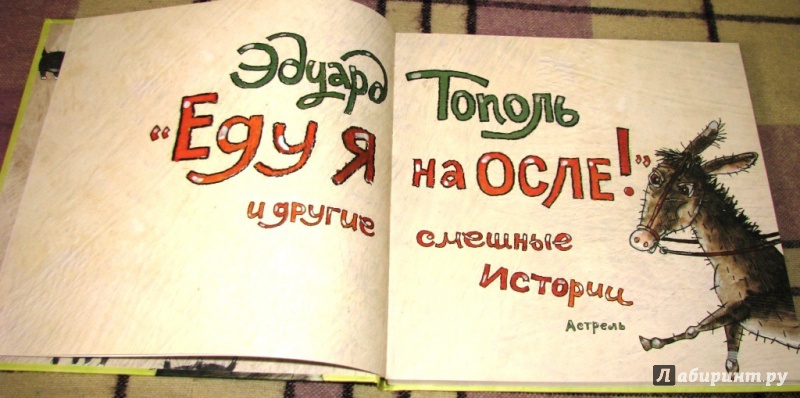 Эдуард Тополь
"Еду я на осле!"
и другие смешные
Истории
Астрель
Лабиринт.ру